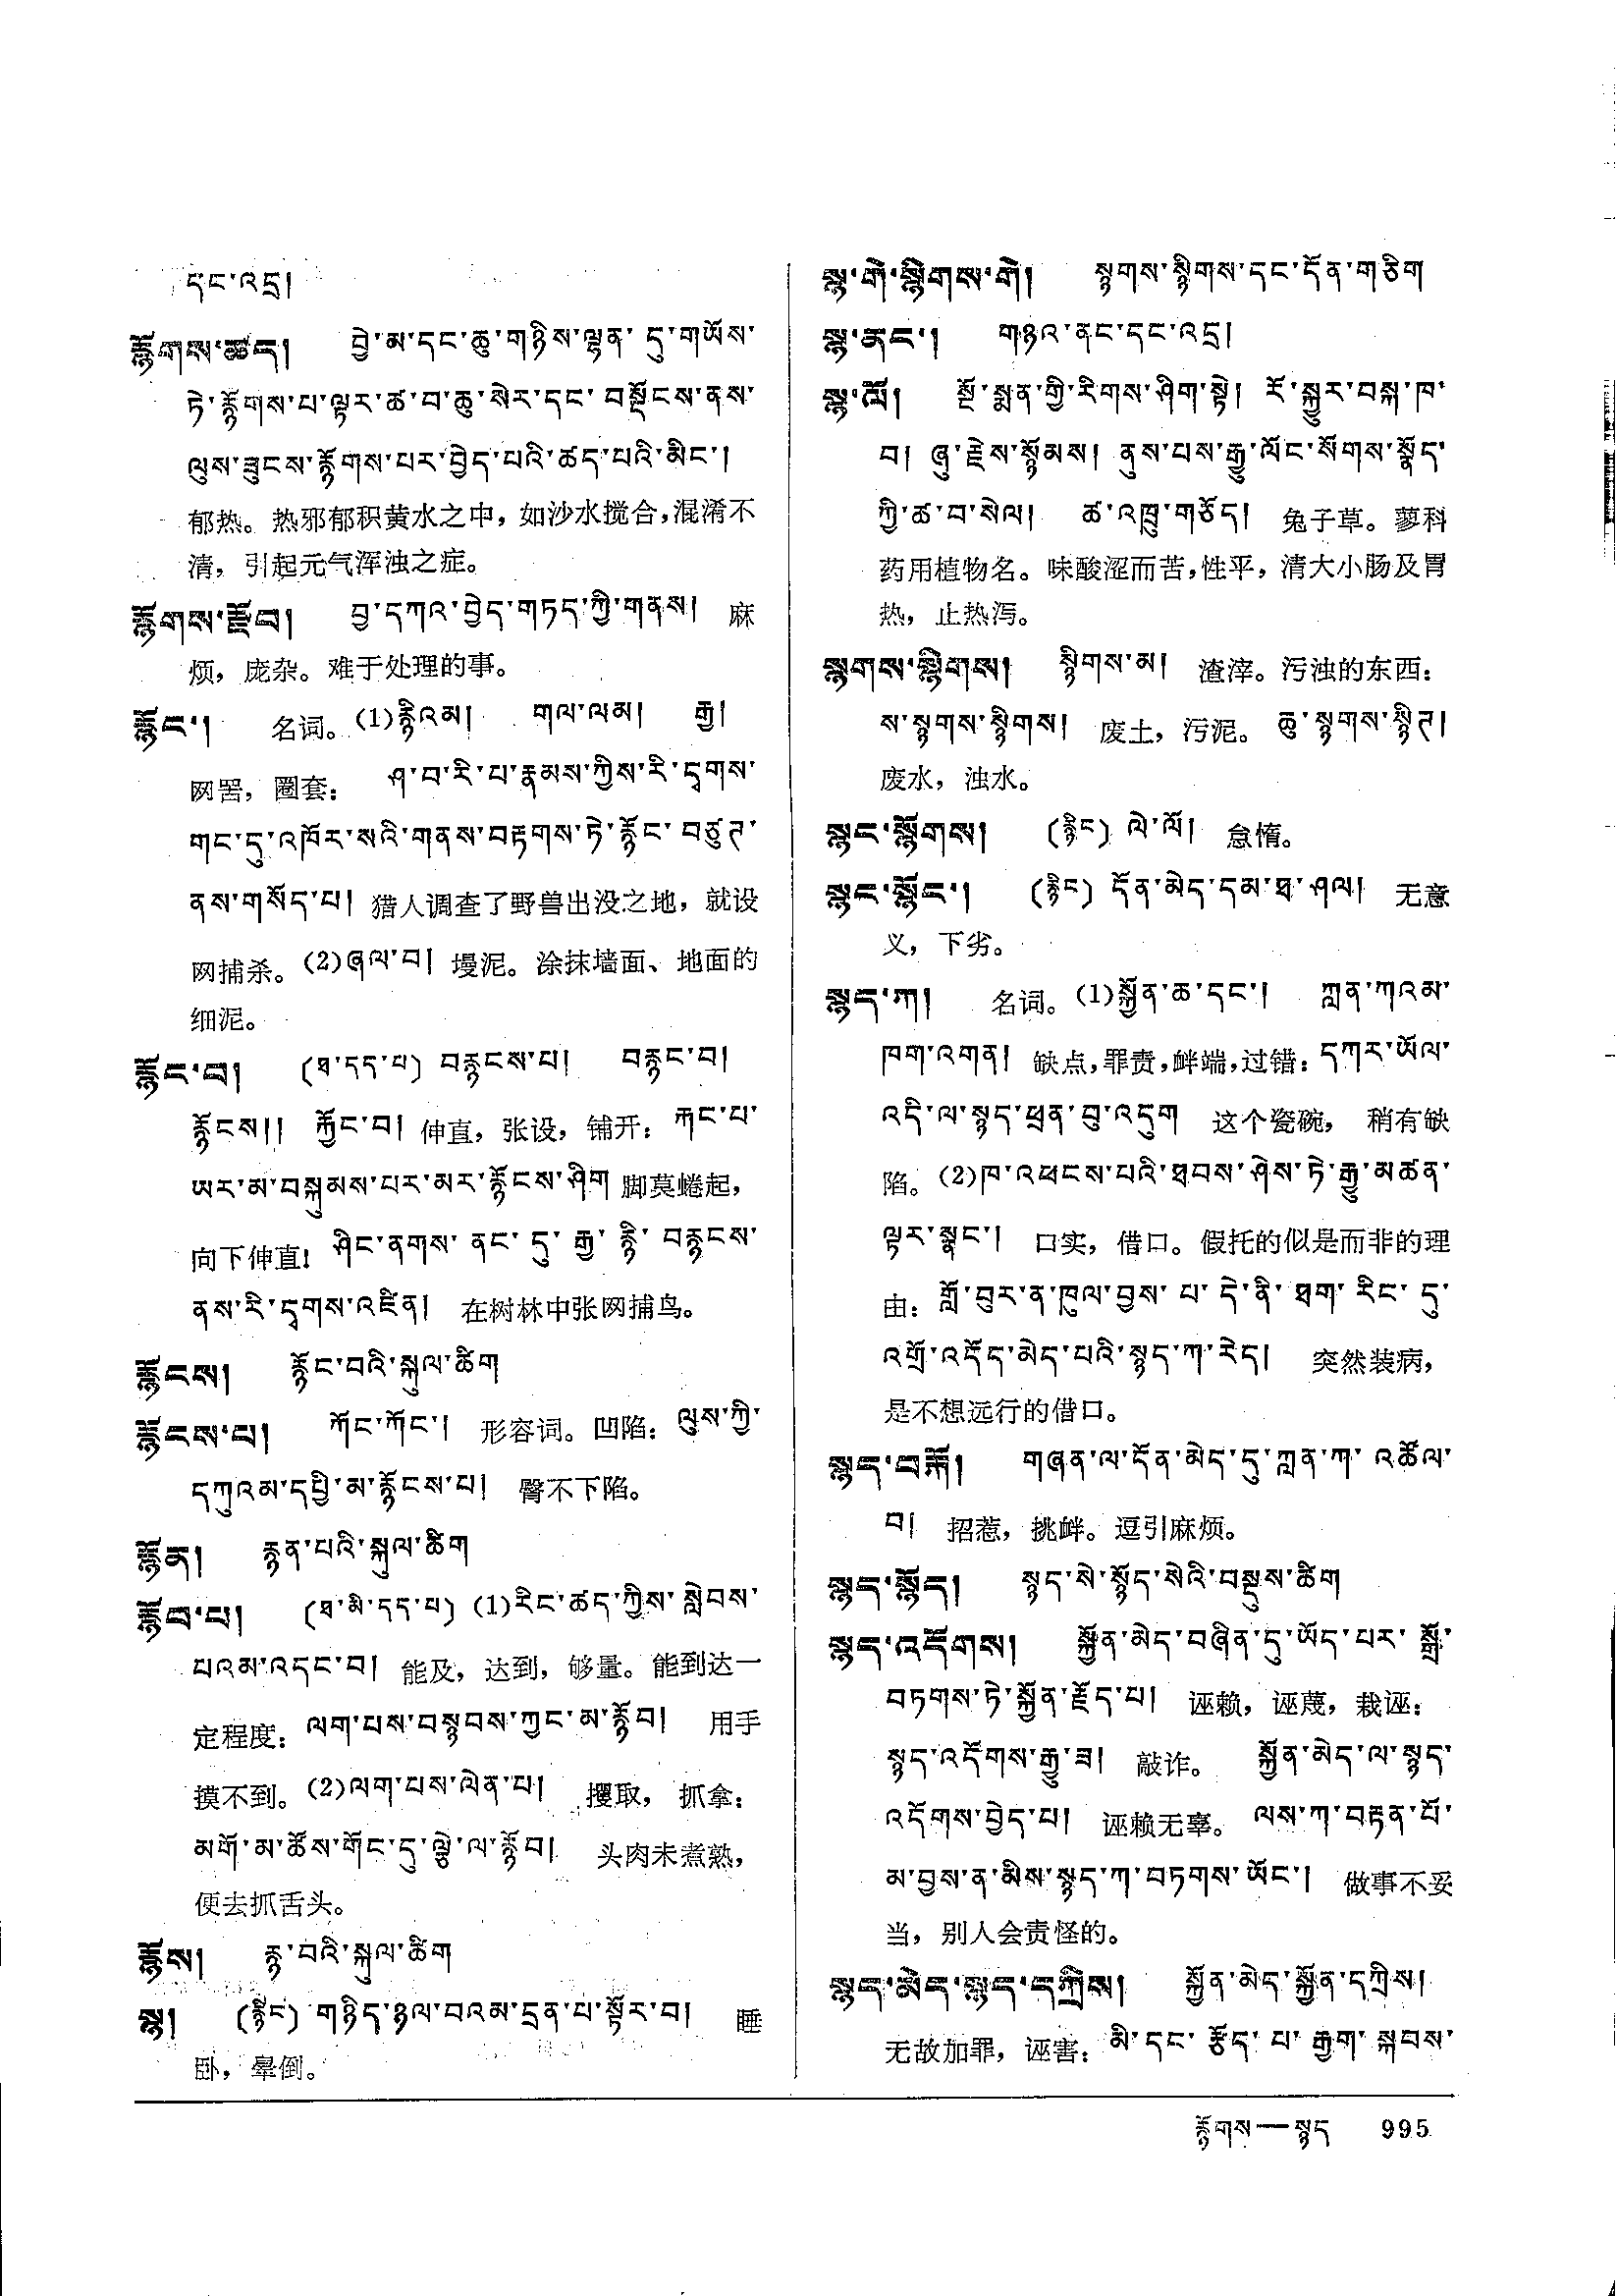 དང་འདྲ།
རྙོགས་ཚད། བྱེ་མ་དང་ཆུ་གཉིས་ལྷན་དུ་གཡོས་
ཏེ་རྙོགས་པ་ལྟར་ཚ་བ་ཆུ་སེར་དང་བསྡོངས་ནས་
ལུས་ཟུངས་རྙོགས་པར་བྱེད་པའི་ཚད་པའི་མིང་།
郁热。热邪郁积黄水之中，如沙水搅合，混淆不
清，引起元气浑浊之症。
རྙོགས་རྫོབ། བྱ་དཀའ་བྱེད་གཏད་ཀྱི་གནས། 麻
烦，庞杂。难于处理的事。
རྙོང་། 名词。(1)རྙིའམ། གལ་ལམ། རྒྱ།
网罟，圈套： ཤ་བ་རི་པ་རྣམས་ཀྱིས་རི་དྭགས་
གང་དུ་འཁོར་སའི་གནས་བརྟགས་ཏེ་རྙོང་བཙུཊ་
ནས་གསོད་པ། 猎人调查了野兽出没之地，就设
网捕杀。(2)ཞལ་བ། 墁泥。涂抹墙面、地面的
细泥。
རྙོང་བ། (ཐ་དད་པ) བརྙངས་པ། བརྙང་བ།
རྙོངས།། རྐྱོང་བ། 伸直，张设，铺开： རྐང་པ་
ཡར་མ་བསྐུམས་པར་མར་རྙོངས་ཤིག 脚莫蜷起，
向下伸直! ཤིང་ནགས་ནང་དུ་རྒྱ་རྙི་བརྙངས་
ནས་རི་དྭགས་འཛིན། 在树林中张网捕鸟。
རྙོངས། རྙོང་བའི་སྐུལ་ཚིག
རྙོངས་པ། ཀོང་ཀོང་། 形容词。凹陷： ལུས་ཀྱི་
དཀུའམ་དཔྱི་མ་རྙོངས་པ། 臀不下陷。
རྙོན། རྙན་པའི་སྐུལ་ཚིག
རྙོབ་པ། (ཐ་མི་དད་པ) (1)རིང་ཚད་ཀྱིས་སླེབས་
པའམ་འདང་བ། 能及，达到，够量。能到达一
定程度： ལག་པས་བསྙབས་ཀྱང་མ་རྙོབ། 用手
摸不到。(2)ལག་པས་ལེན་པ། 攫取，抓拿：
མགོ་མ་ཚོས་གོང་དུ་ལྕེ་ལ་རྙོབ། 头肉未煮熟，
便去抓舌头。
རྙོས། རྙ་བའི་སྐུལ་ཚིག
སྙ། (རྙིང) གཉིད་ཉལ་བའམ་དྲན་པ་སྟོར་བ། 睡
卧，晕倒。
སྙ་གེ་སྙིགས་གེ། སྙགས་སྙིགས་དང་དོན་གཅིག
སྙ་ནང་། གཉའ་ནང་དང་འདྲ།
སྙ་ལོ། སྔོ་སྨན་གྱི་རིགས་ཤིག་སྟེ། རོ་སྐྱུར་བསྐ་ཁ་
བ། ཞུ་རྗེས་སྙོམས། ནུས་པས་རྒྱུ་ལོང་སོགས་སྣོད་
ཀྱི་ཚ་བ་སེལ། ཚ་འཁྲུ་གཅོད། 兔子草。蓼科
药用植物名。味酸涩而苦，性平，清大小肠及胃
热，止热泻。
སྙགས་སྙིགས། སྙིགས་མ། 渣滓。污浊的东西：
ས་སྙགས་སྙིགས། 废土，污泥。 ཆུ་སྙགས་སྙིཊ།
废水，浊水。
སྙང་སྙོགས། (རྙིང) ལེ་ལོ། 怠惰。
སྙང་སྙོང་། (རྙིང) དོན་མེད་དམ་ཐ་ཤལ། 无意
义，下劣。
སྙད་ཀ། 名词。(1)སྐྱོན་ཆ་དང་། ཀླན་ཀའམ་
ཁག་འགན། 缺点，罪责，衅端，过错： དཀར་ཡོལ་
འདི་ལ་སྙད་ཕྲན་བུ་འདུག 这个瓷碗，稍有缺
陷。(2)ཁ་འཕངས་པའི་ཐབས་ཤེས་ཏེ་རྒྱུ་མཚན་
ལྟར་སྣང་། 口实，借口。假托的似是而非的理
由： གློ་བུར་ན་ཁུལ་བྱས་པ་དེ་ནི་ཐག་རིང་དུ་
འགྲོ་འདོད་མེད་པའི་སྙད་ཀ་རེད། 突然装病，
是不想远行的借口。
སྙད་བརྐོ། གཞན་ལ་དོན་མེད་དུ་ཀླན་ཀ་འཚོལ་
བ། 招惹，挑衅。逗引麻烦。
སྙད་སྙོད། སྙད་སེ་སྙོད་སེའི་བསྡུས་ཚིག
སྙད་འདོགས། སྐྱོན་མེད་བཞིན་དུ་ཡོད་པར་སྒྲོ་
བཏགས་ཏེ་སྐྱོན་རྗོད་པ། 诬赖，诬蔑，栽诬：
སྙད་འདོགས་རྒྱུ་ཟ། 敲诈。 སྐྱོན་མེད་ལ་སྙད་
འདོགས་བྱེད་པ། 诬赖无辜。 ལས་ཀ་བརྟན་པོ་
མ་བྱས་ན་མིས་སྙད་ཀ་བཏགས་ཡོང་། 做事不妥
当，别人会责怪的。
སྙད་མེད་སྙད་དཀྲིས། སྐྱོན་མེད་སྐྱོན་དཀྲིས།
无故加罪，诬害： མི་དང་རྩོད་པ་རྒྱག་སྐབས་
རྙོགས—སྙད 995